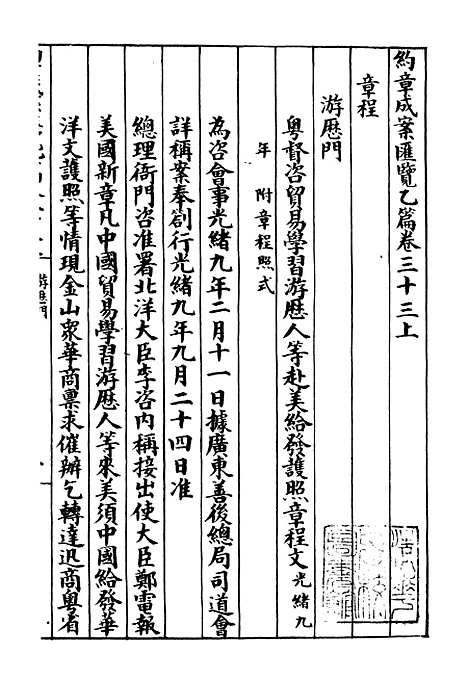 約章成案匯覽乙篇卷三十三上
章程
游歷門
粵督咨貿易學習游歷人等赴美給發護照章程文光緒九
年 附章程照式
為咨會事光緒九年二月十一日據廣東善後總局司道會
詳稱案奉劄行光緒九年九月二十四日准
總理衙門咨准署北洋大臣李咨內稱接出使大臣鄭電報
美國新章凡中國貿易學習游歷人等來美須中國給發華
洋文護照等情現金山衆華商禀求催辦乞轉達迅商粵省
游歷門